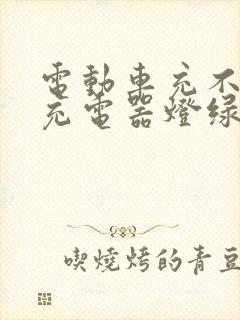 電動車充不
充電器燈绿
喫燒烤的青豆